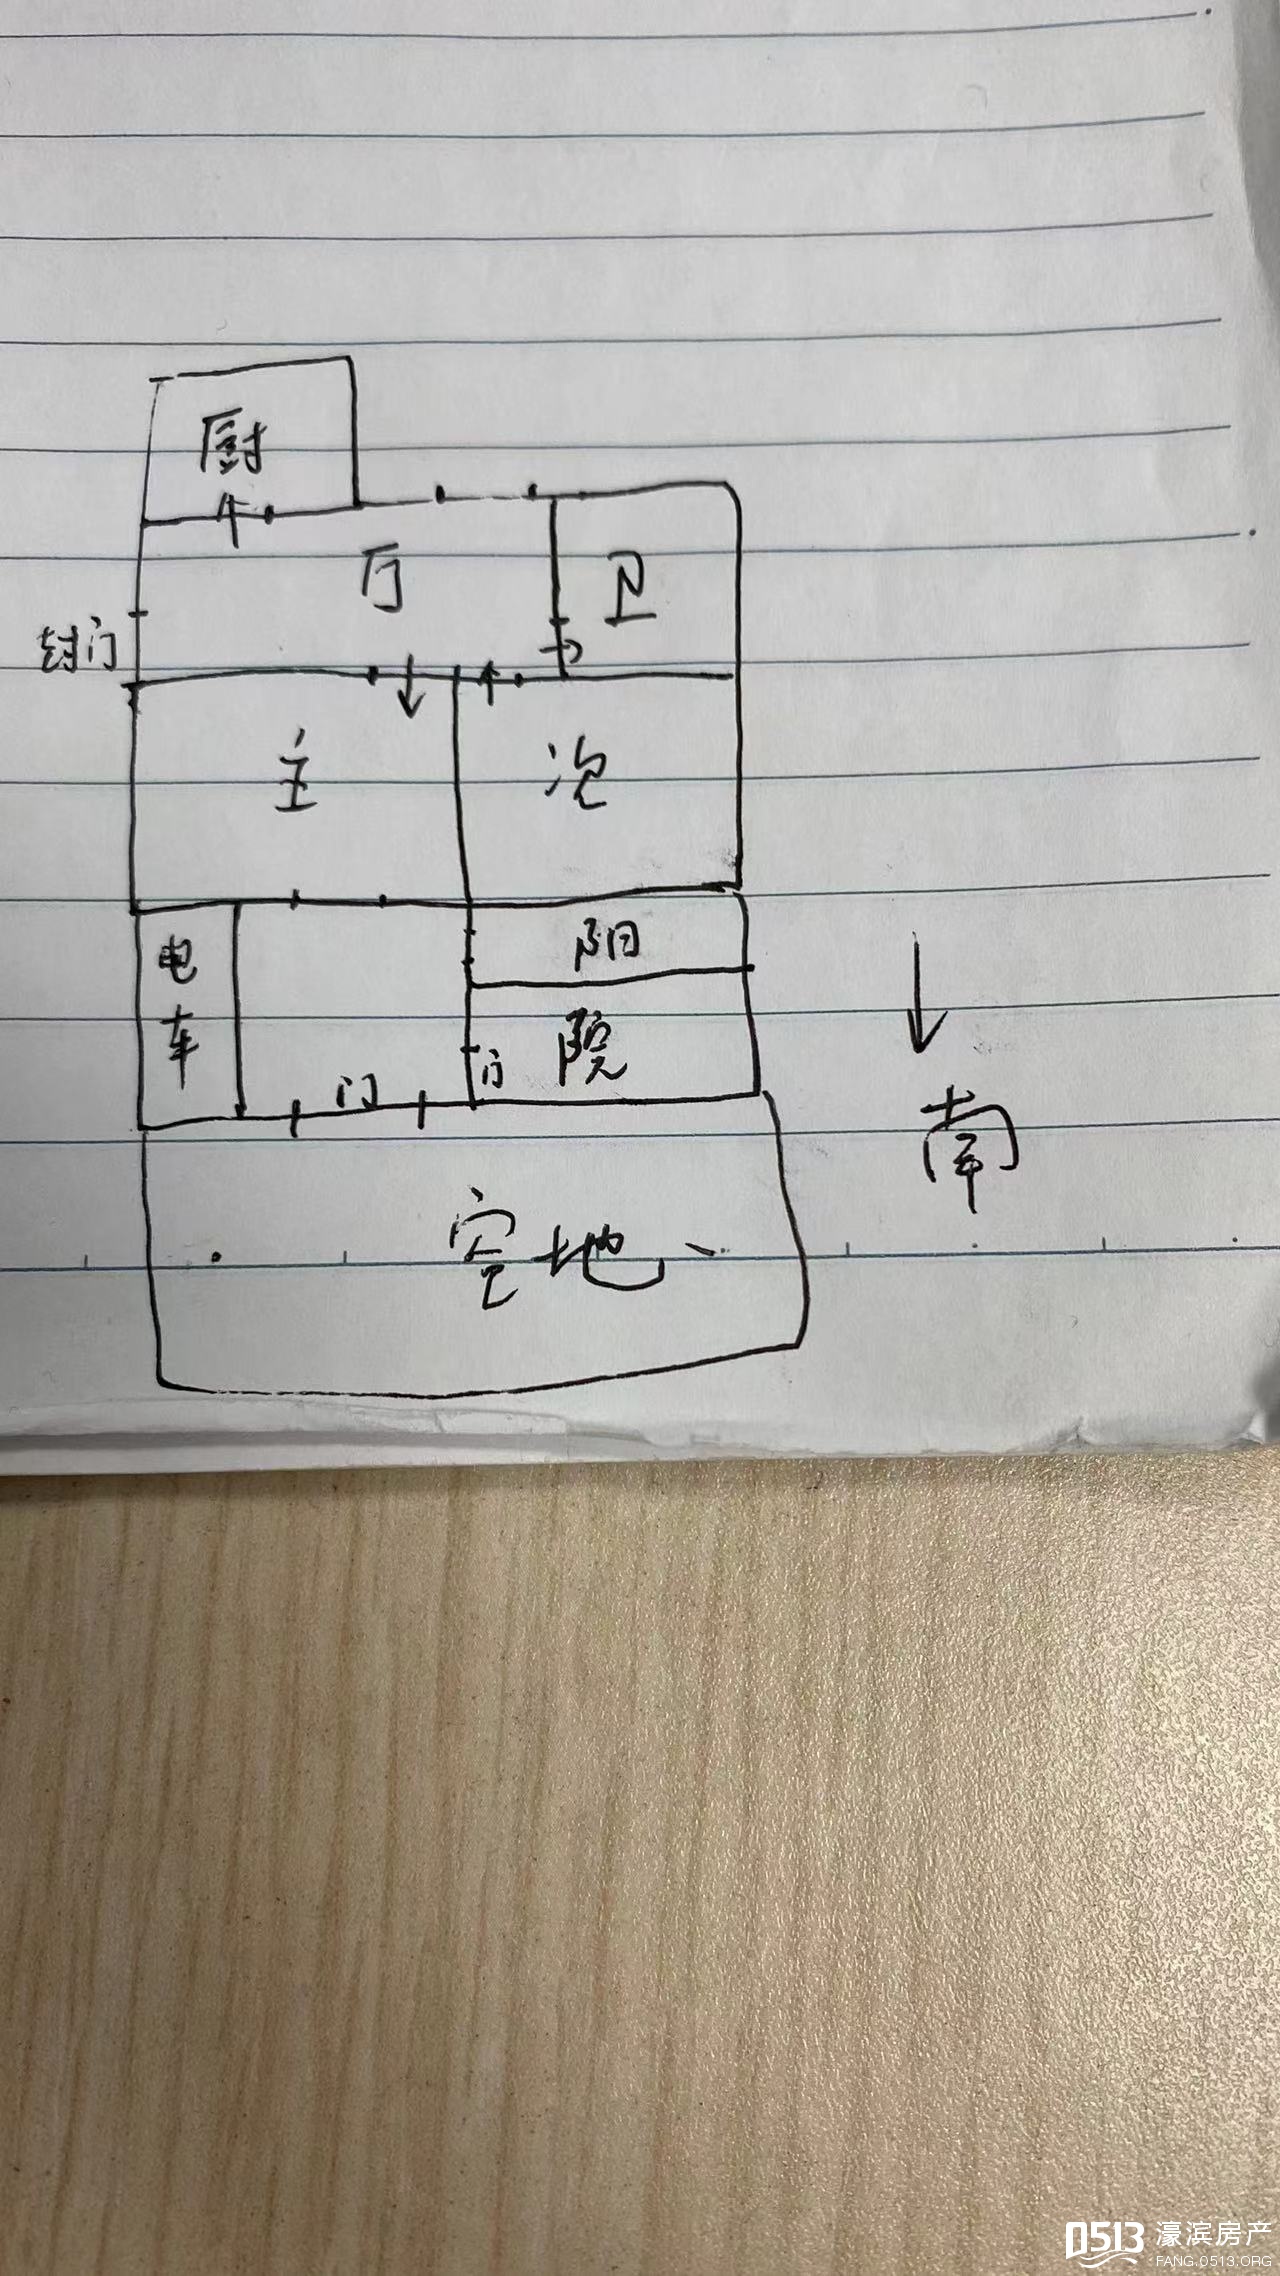 厨
厅
卫
封门
主
次
电
车
阳
院
门
门
南
空地
0513 濠滨房产
FANG.0513.ORG